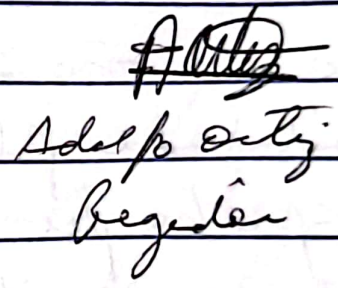 A Ortiz
Adolfo Ortiz
Regidor